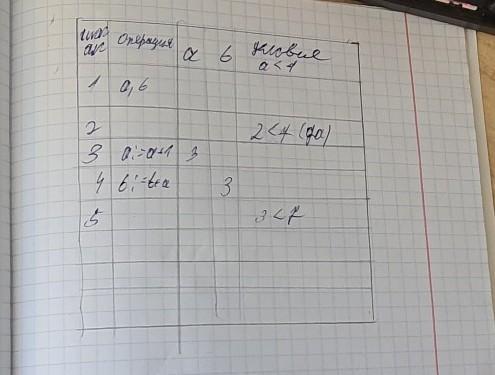 шаг операция a b условие
a<7
1 a, b
2 2<7 (да)
3 a:=a+1 3
4 b:=b+a 3
5 3<7